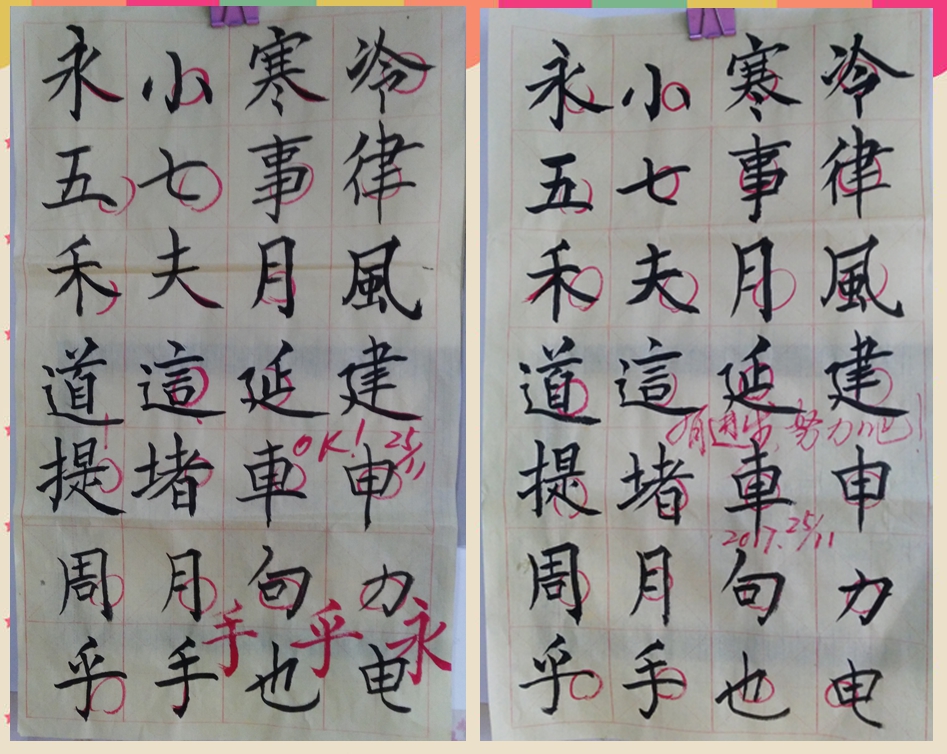 永 小 寒 冷
五 七 事 律
禾 夫 月 風
道 這 延 建
OK! 25/11
提 堵 車 申
周 月 句 力
手 乎 永
乎 手 也 电
永 小 寒 冷
五 七 事 律
禾 夫 月 風
道 這 延 建
有进步,努力吧!
提 堵 車 申
2017.25/11
周 月 句 力
乎 手 也 电